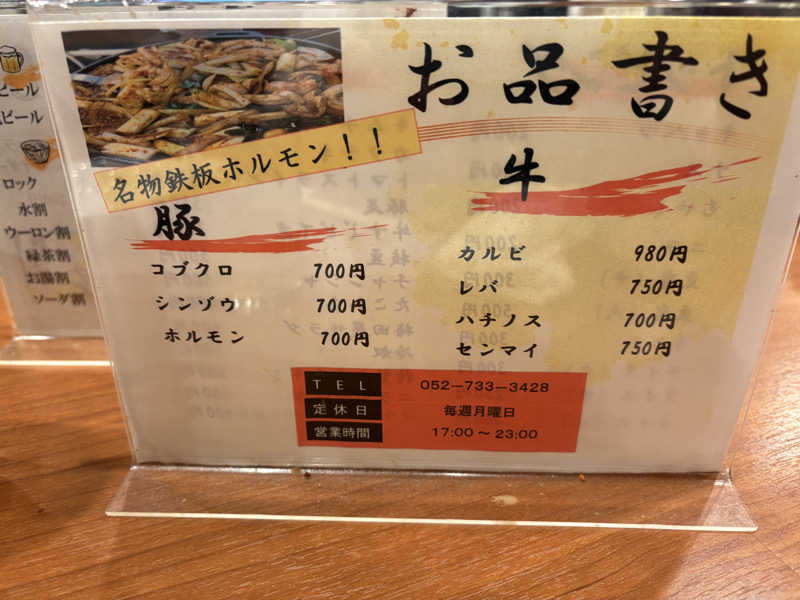 お品書き
名物鉄板ホルモン！！
豚
コブクロ 700円
シンゾウ 700円
ホルモン 700円
牛
カルビ 980円
レバ 750円
ハチノス 700円
センマイ 750円
TEL 052-733-3428
定休日 毎週月曜日
営業時間 17:00～23:00
ビール
ビール
ロック
水割
ウーロン割
緑茶割
お湯割
ソーダ割